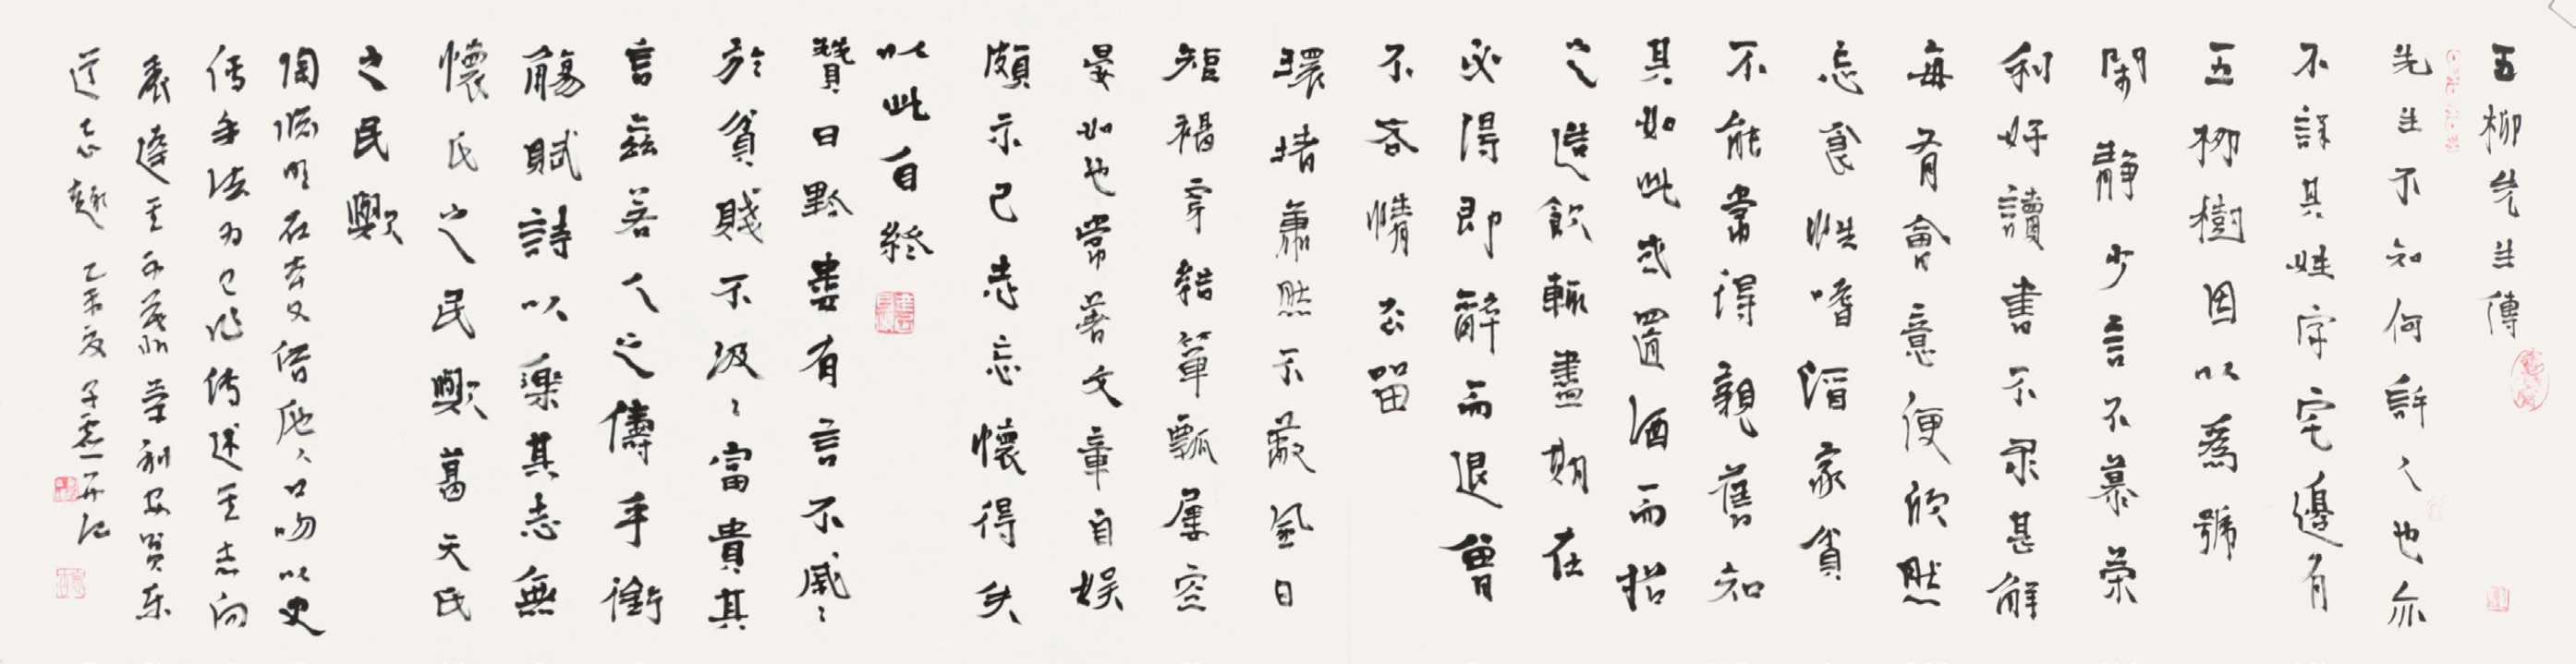 五柳先生傳
先生不知何許人也亦
不詳其姓字宅邊有
五柳樹因以爲號
閑靜少言不慕榮
利好讀書不求甚解
每有會意便欣然
忘食性嗜酒家貧
不能常得親舊知
其如此或置酒而招
之造飲輒盡期在
必得即醉而退曾
不吝情去留
環堵蕭然不蔽風日
短褐穿結簞瓢屢空
晏如也常著文章自娛
頗示己志忘懷得失
以此自終
贊曰黔婁有言不戚々
於貧賤不汲々富貴其
言茲若人之儔乎銜
觴賦詩以樂其志無
懷氏之民歟葛天氏
之民歟
陶淵明在本文借他人口吻以史
傳手法为己作传述其志向
表達其不慕榮利安貧樂
道志趣 乙未夏